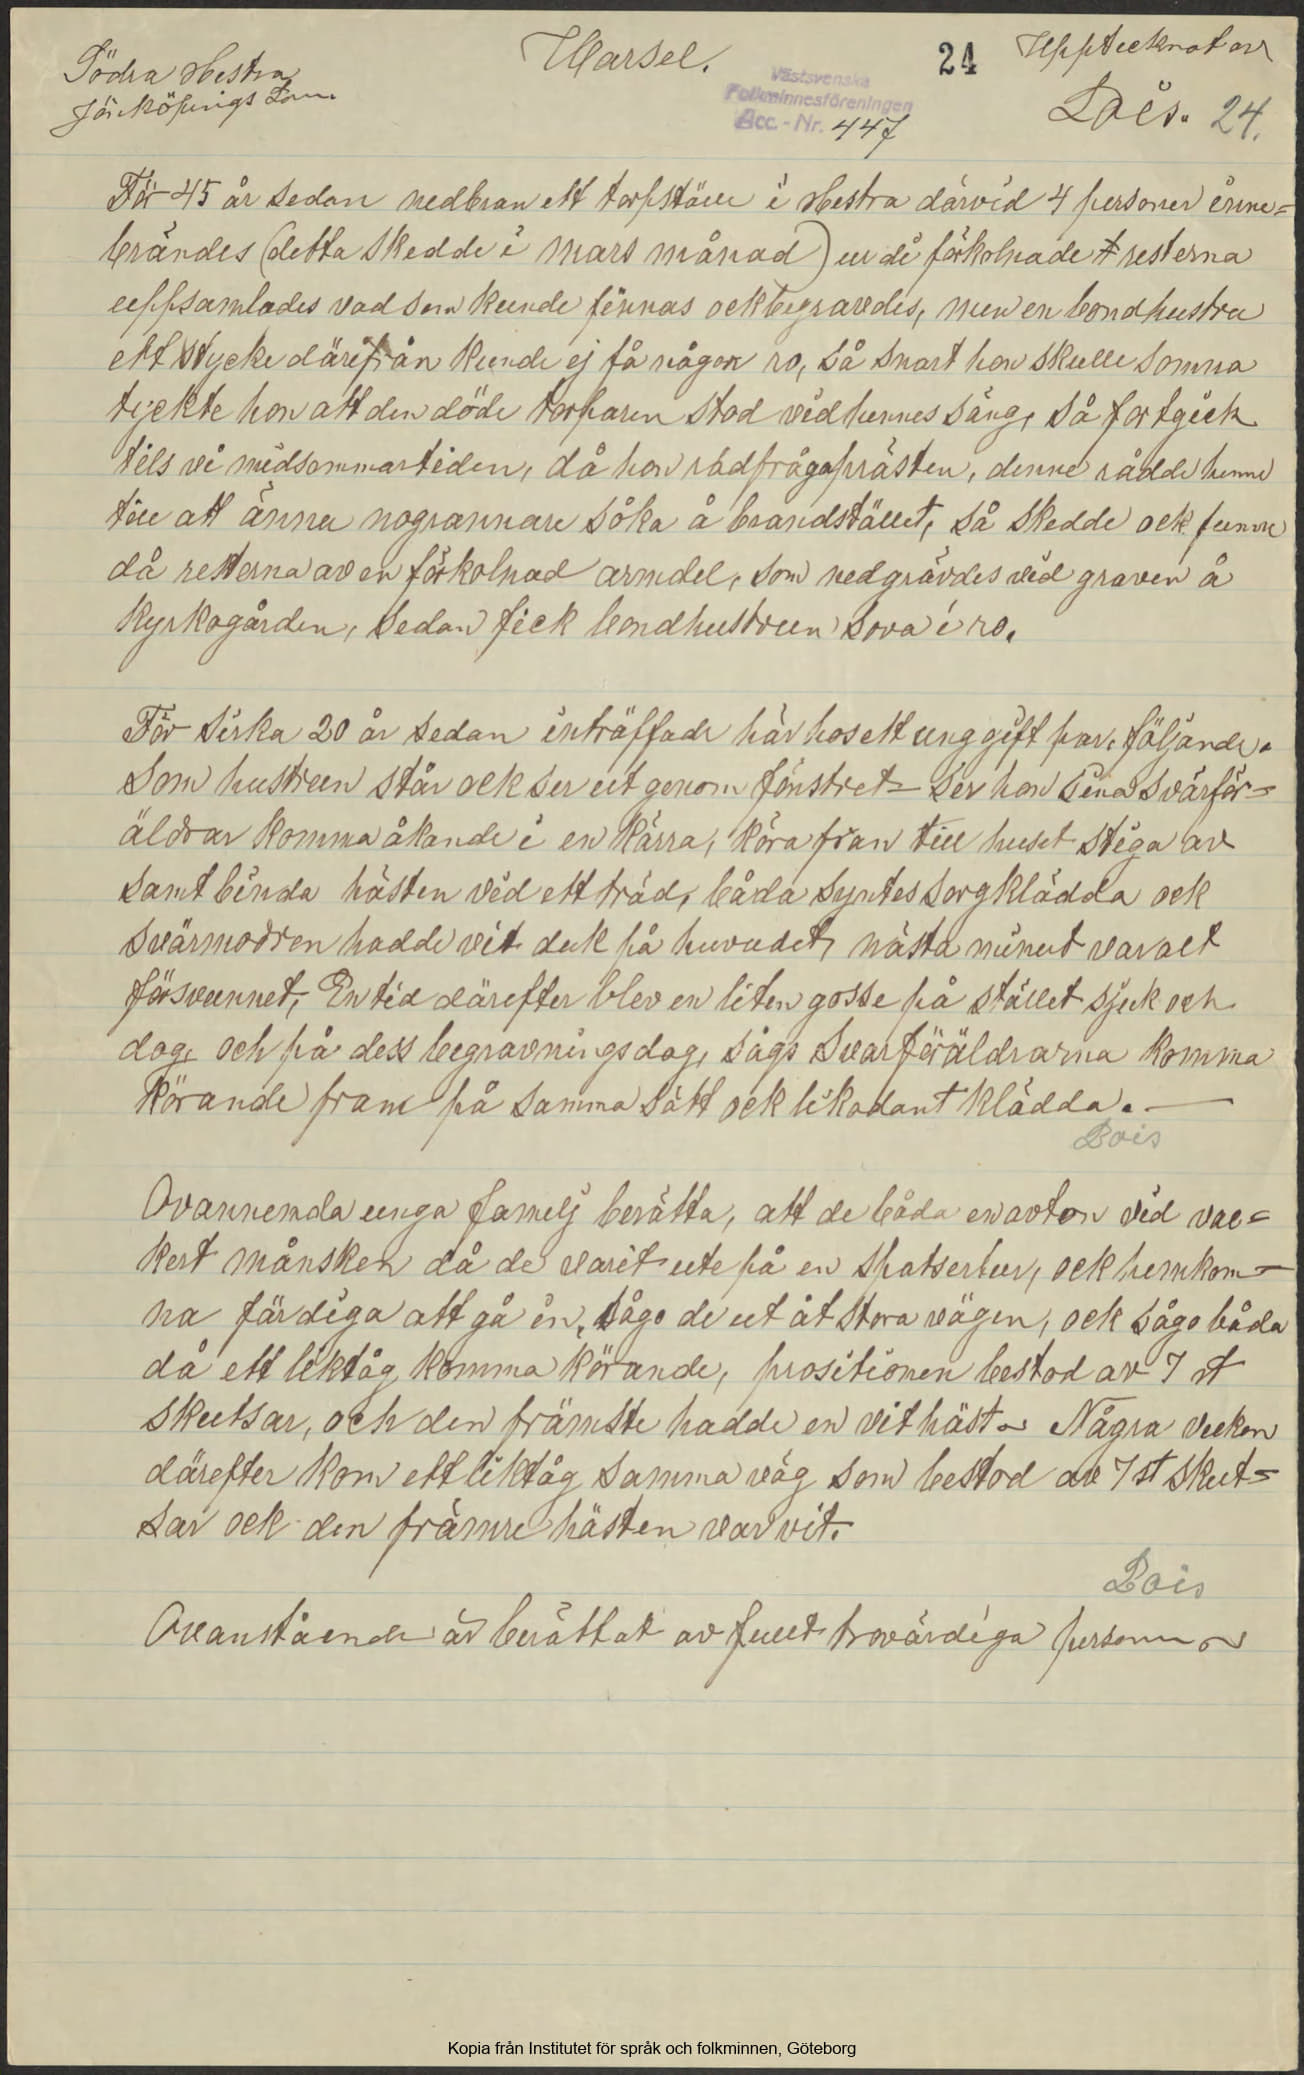 Södra Hestra
Jönköpings Län
Varsel.
24
Upptecknat av
Lois. 24.
Västsvenska
Folkminnesföreningen
Acc.-Nr. 447
För 45 år sedan nedbran ett torpställe i Hestra därvid 4 personer inne=
brändes (detta skedde i mars månad) ur di förkolnade resterna
uppsamlades vad som kunde finnas ock begravedis, men en bondhustru
ett stycke därifrån kunde ej få någon ro, så snart hon skulle somna
tyckte hon att den döde torparen stod vid hennes säng, så fortgick
tils vi midsommartiden, då hon rådfrågaprästen, denne rådde henne
till att ännu nogrannare söka å brandstället, så skedde ock funno
då resterna av en förkolnad armdel, som nedgrävdes vid graven å
kyrkogården, sedan fick bondhustrun sova i ro.
För sirka 20 år sedan inträffade här hos ett ung gift par, följande.
Som hustrun står ock ser ut genom fönstret - ser hon sina svärför=
äldrar komma åkande i en kärra, köra fran till huset stiga av
samt binda hästen vid ett träd, båda syntes sorgklädda ock
svärmodren hadde vit duk på huvudet, nästa minut var alt
försvunnet, En tid därefter blev en liten gosse på stället sjuk och
dog, och på dess begravningsdag, sågs svarföräldrarna komma
körande fram på samma sätt ock likadant klädda. —
Lois
Ovannemda unga familj berätta, att de båda en avton vid vac=
kert månsken då de varit ute på en spatsertur, ock hemkom-
na färdiga att gå in, sågo de ut åt stora vägen, ock sågo båda
då ett liktåg komma körande, prositionen bestod av 7 st
skutsar, och den främste hadde en vit häst. Några veckor
därefter kom ett liktåg samma väg som bestod av 7 st skut=
sar ock den främre hästen var vit.
Lois
Ovanstående är berättat av fullt trovärdiga personer
Kopia från Institutet för språk och folkminnen, Göteborg